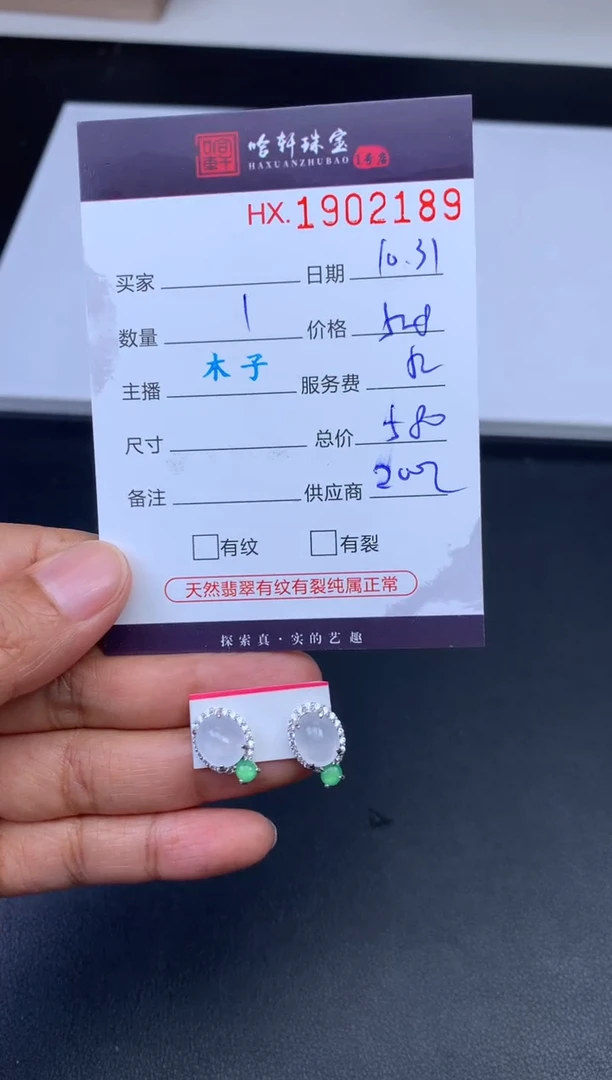 哈轩珠宝
HAXUANZHUBAO 1号店
HX.1902189
买家 日期 10.31
数量 1 价格 528
主播 木子 服务费 52
尺寸 总价 580
备注 供应商
有纹 有裂
天然翡翠有纹有裂纯属正常
探索真·实的艺趣